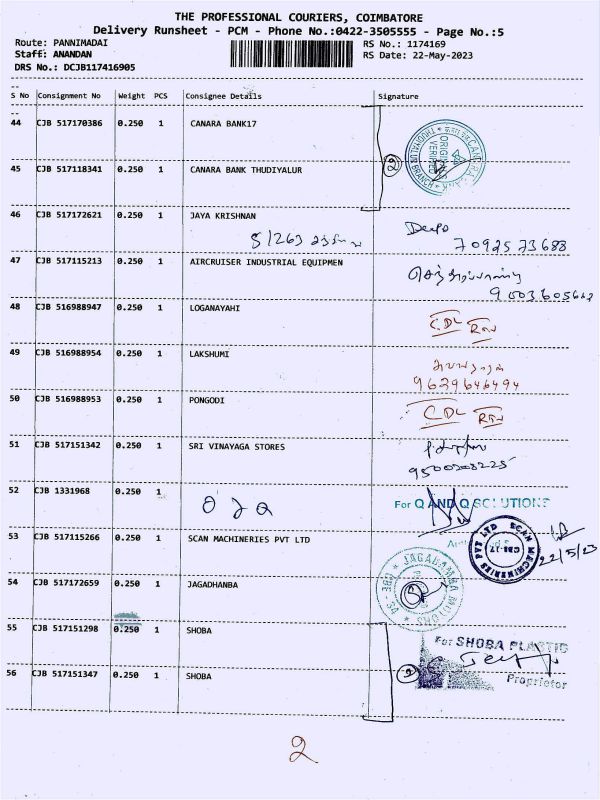 THE PROFESSIONAL COURIERS, COIMBATORE
Delivery Runsheet - PCM - Phone No.:0422-3505555 - Page No.:5
Route: PANNIMADAI RS No.: 1174169
Staff: ANANDAN RS Date: 22-May-2023
DRS No.: DCJB117416905
S No Consignment No Weight PCS Consignee Details Signature
44 CJB 517170386 0.250 1 CANARA BANK17
45 CJB 517118341 0.250 1 CANARA BANK THUDIYALUR
46 CJB 517172621 0.250 1 JAYA KRISHNAN
7092573688
47 CJB 517115213 0.250 1 AIRCRUISER INDUSTRIAL EQUIPMEN
48 CJB 516988947 0.250 1 LOGANAYAHI
CDL RTN
49 CJB 516988954 0.250 1 LAKSHUMI
9629646494
50 CJB 516988953 0.250 1 PONGODI
CDL RTN
51 CJB 517151342 0.250 1 SRI VINAYAGA STORES
9500208225
52 CJB 1331968 0.250 1
For Q AND Q SOLUTIONS
53 CJB 517115266 0.250 1 SCAN MACHINERIES PVT LTD
SCAN MACHINERIES PVT LTD
CBE-17
22/5/23
54 CJB 517172659 0.250 1 JAGADHANBA
JAGADAMBA MOTORS
55 CJB 517151298 0.250 1 SHOBA
For SHOBA PLASTIC
56 CJB 517151347 0.250 1 SHOBA
Proprietor
2